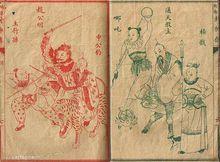 楊戩
通天教主
哪吒
申公豹
趙公明
土行孫